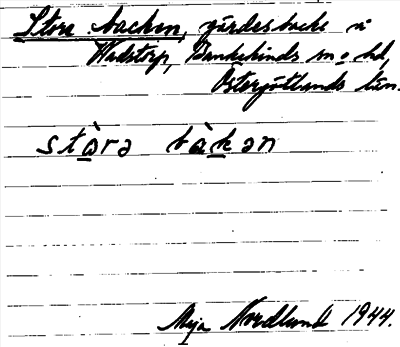 Stora backen, gärdesbacke i
Wadstorp, Bankekinds sn o hd,
Östergötlands län.
stòra bàkən
Maja Nordlund 1944.